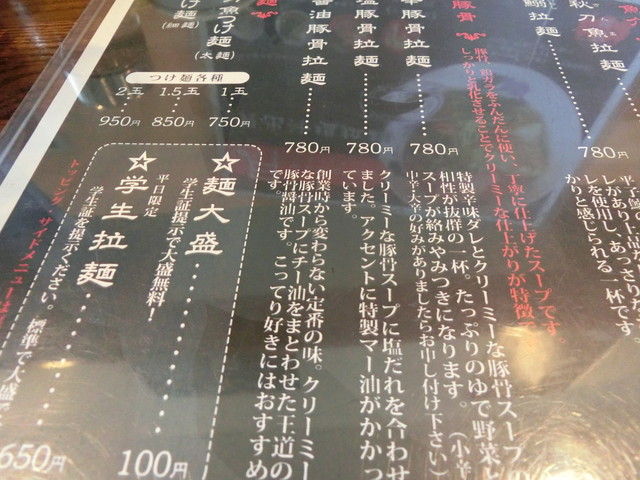 秋刀魚拉麺
780円
平子
レがあり上
レを使用し、あっさり
かりと感じられる一杯です。
鰯拉麺
豚骨
豚骨、鶏ガラをふんだんに使い、丁寧に仕上げたスープです
しっかりと乳化させることでクリーミーな仕上がりが特徴で
豚骨拉麺
780円
特製辛味ダレとクリーミーな豚骨スープの
相性が抜群の一杯。たっぷりのゆで野菜と
スープが絡みやみつきになります。(小辛
中辛大辛の好みがありましたらお申し付け下さい)
塩豚骨拉麺
780円
クリーミーな豚骨スープに塩だれを合わせ
ました。アクセントに特製マー油がかかっ
ています。
醤油豚骨拉麺
780円
創業時から変わらない定番の味。クリーミー
な豚骨スープにチー油をまとわせた王道の
豚骨醤油です。こってり好きにはおすすめ
です。
刀魚つけ麺(太麺)
け麺(細麺)
つけ麺各種
1玉 750円
1.5玉 850円
2玉 950円
☆麺大盛 100円
学生証提示で大盛無料!
平日限定
☆学生拉麺 650円
学生証を提示ください。標準で大盛
トッピング サイドメニューは